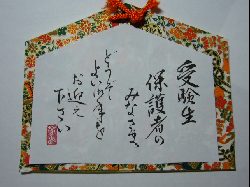 受験生
保護者の
みなさま、
どうぞ
よいお年を
お迎え
下さい